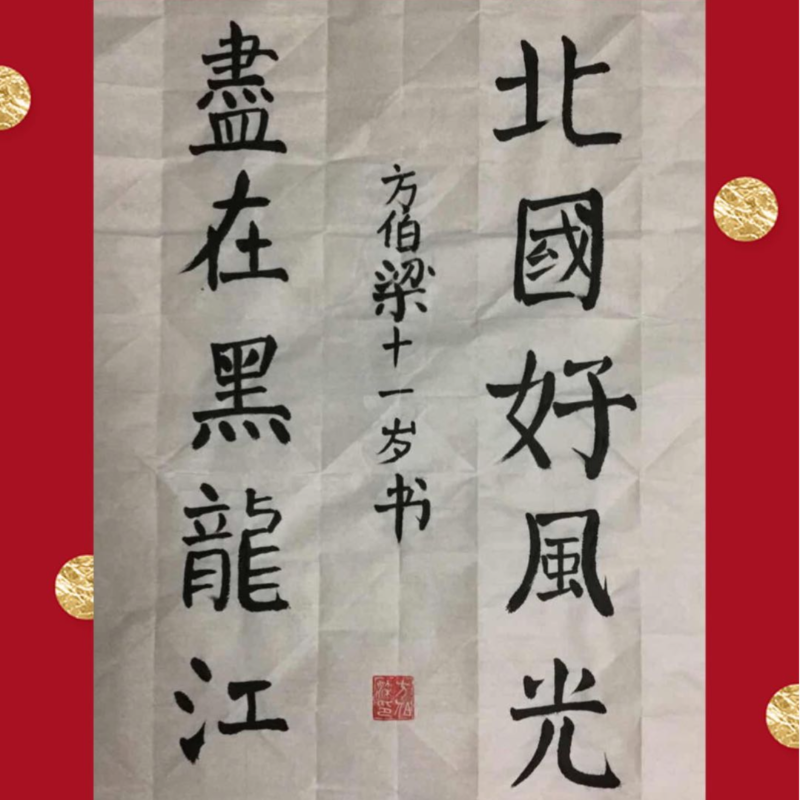 北國好風光
盡在黑龍江
方伯梁十一岁书